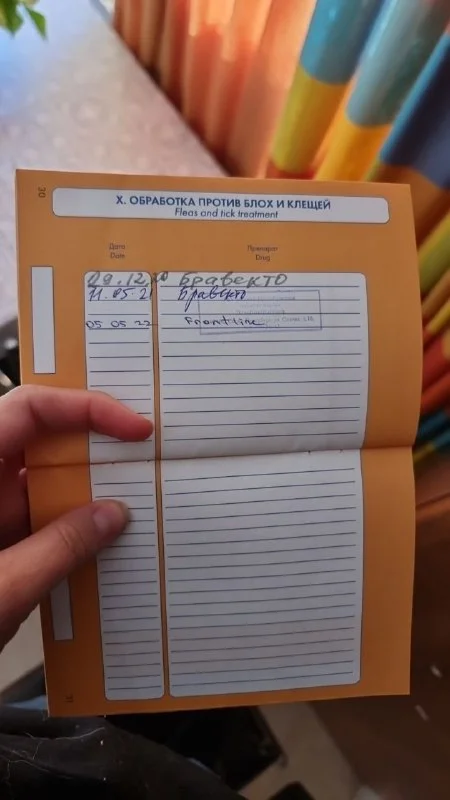 30
X. ОБРАБОТКА ПРОТИВ БЛОХ И КЛЕЩЕЙ
Fleas and tick treatment
Дата
Date
Препарат
Drug
09.12.20 Бравекто
11.05.21 Бравекто
05 05 22 Frontline
31